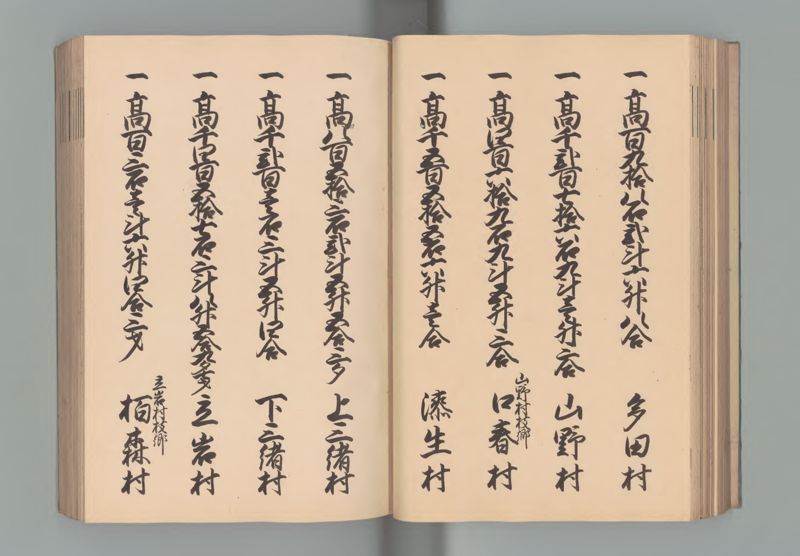 一 高百九拾八石弐斗六升八合 多田村
一 高千弐百七拾六石九斗壱升二合 山野村
一 高四百六拾九石九斗五升二合 山野村枝郷 口春村
一 高千五百五拾五石六升壱合 漆生村
一 高八百五拾二石弐斗五升五合三夕 上三緒村
一 高千弐百壱石三斗五升四合 下三緒村
一 高千四百五拾七石三斗八升五合九夕 立岩村
一 高百三石壱斗六升四合三夕 立岩村枝郷 栢森村